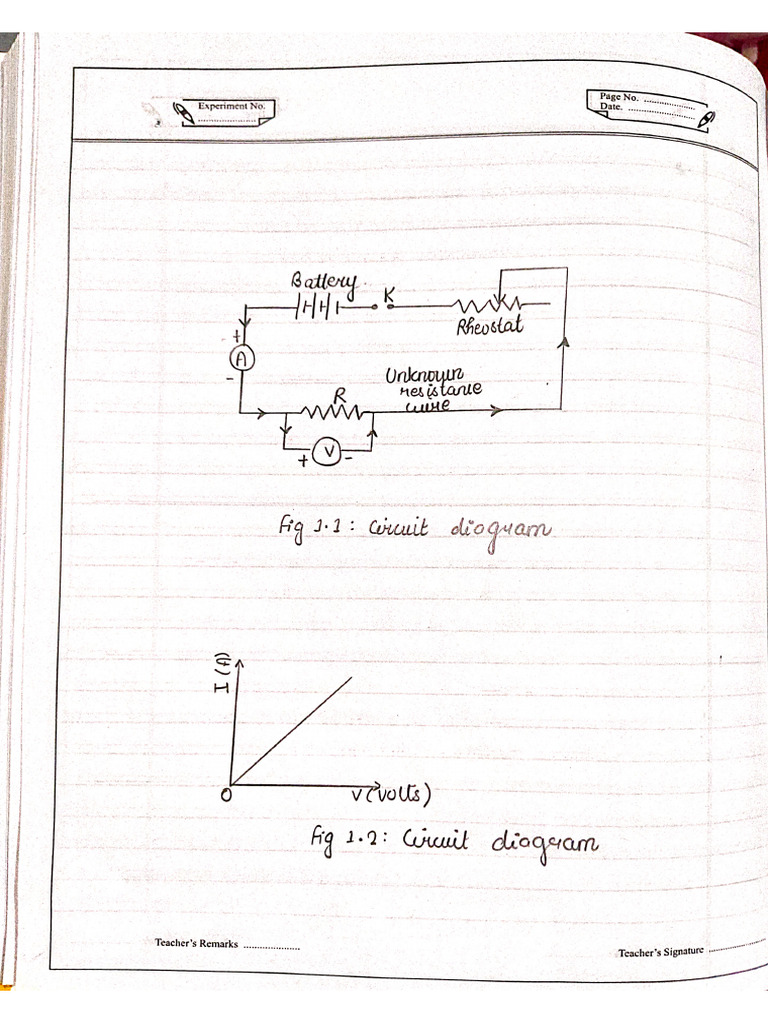 Experiment No. ..................
Page No. ................
Date. .....................
Battery.
K
Rheostat
+
A
-
R
Unknown
resistance
wire
+
V
-
Fig 1.1: Circuit diagram
I (A)
O
V (volts)
Fig 1.2: Circuit diagram
Teacher's Remarks ...................
Teacher's Signature ...................